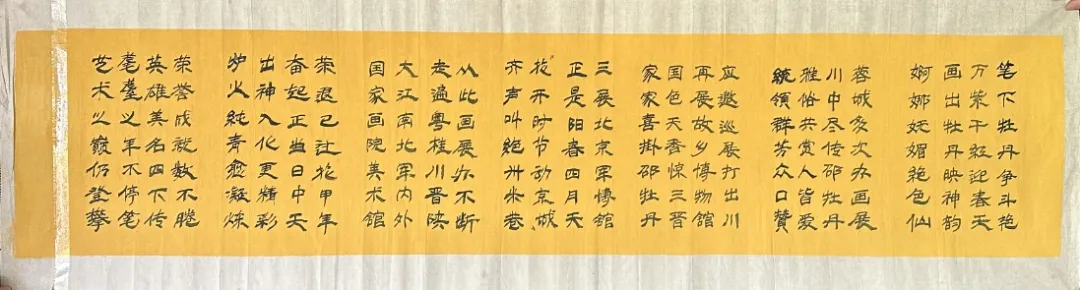 笔下牡丹争斗艳
万紫千红迎春天
画出牡丹映神韵
婀娜妩媚绝色仙
蓉城多次办画展
川中尽传邵牡丹
雅俗共赏人皆爱
統領群芳众口贊
应邀巡展打出川
再展故乡博物馆
国色天香惊三晋
家家喜掛邵牡丹
三展北京军博馆
正是阳春四月天
花开时节动京城
齐声叫绝卅米卷
从此画展办不断
走遍粤桂川晋陕
大江南北军内外
国家画院美术馆
荣退已过花甲年
奋起正当日中天
出神入化更精彩
炉火纯青愈凝炼
荣誉成就数不胜
英雄美名四下传
耄耋之年不停笔
艺术之巅仍登攀